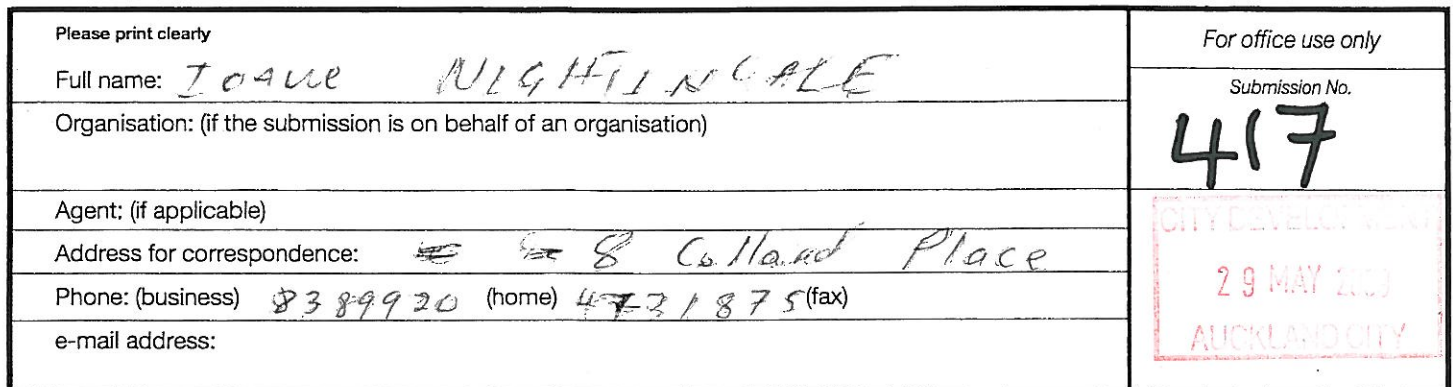 Please print clearly
Full name: Ioaue NIGHTINGALE
Organisation: (if the submission is on behalf of an organisation)
Agent: (if applicable)
Address for correspondence: 8 Colland Place
Phone: (business) 8389920 (home) 4731875 (fax)
e-mail address:
For office use only
Submission No.
417
CITY DEVELOPMENT
29 MAY
AUCKLAND CITY